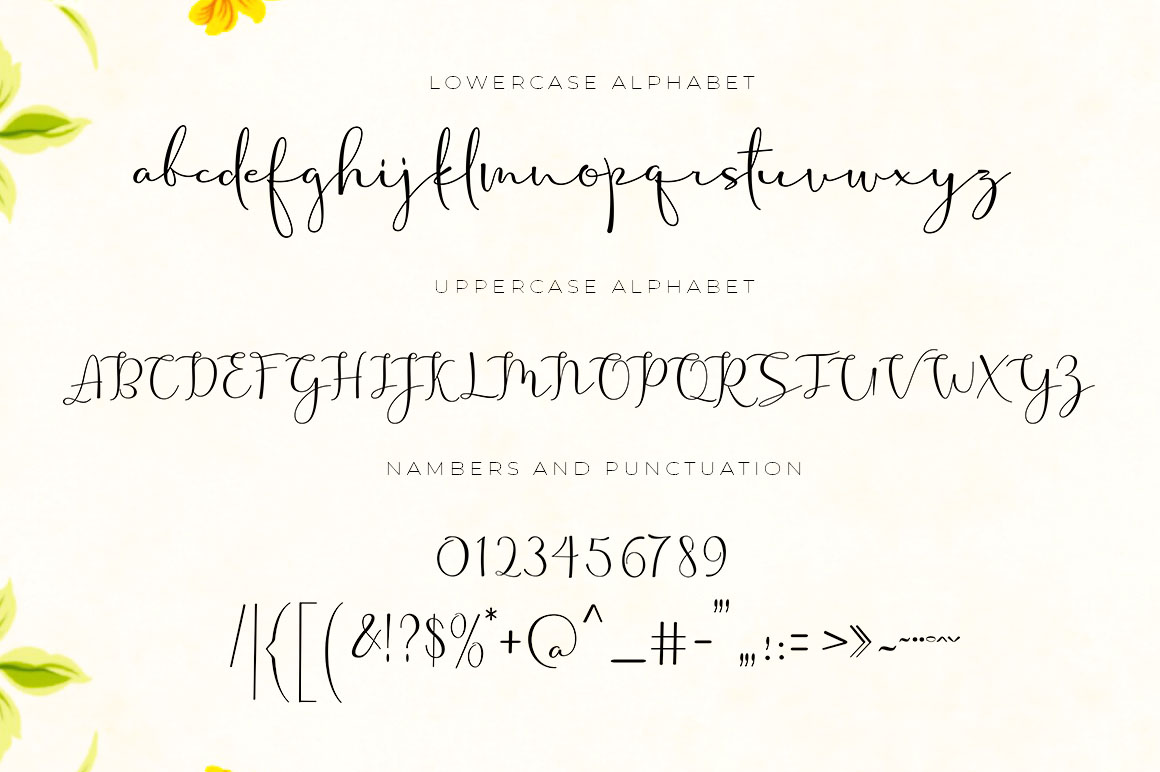 LOWERCASE ALPHABET
abcdefghijklmnopqrstuvwxyz
UPPERCASE ALPHABET
ABCDEFGHIJKLMNOPQRSTUVWXYZ
NAMBERS AND PUNCTUATION
0123456789
/|{[(&!?$%*+@^_#-''',,,!:=>»~~¨°^ˇ